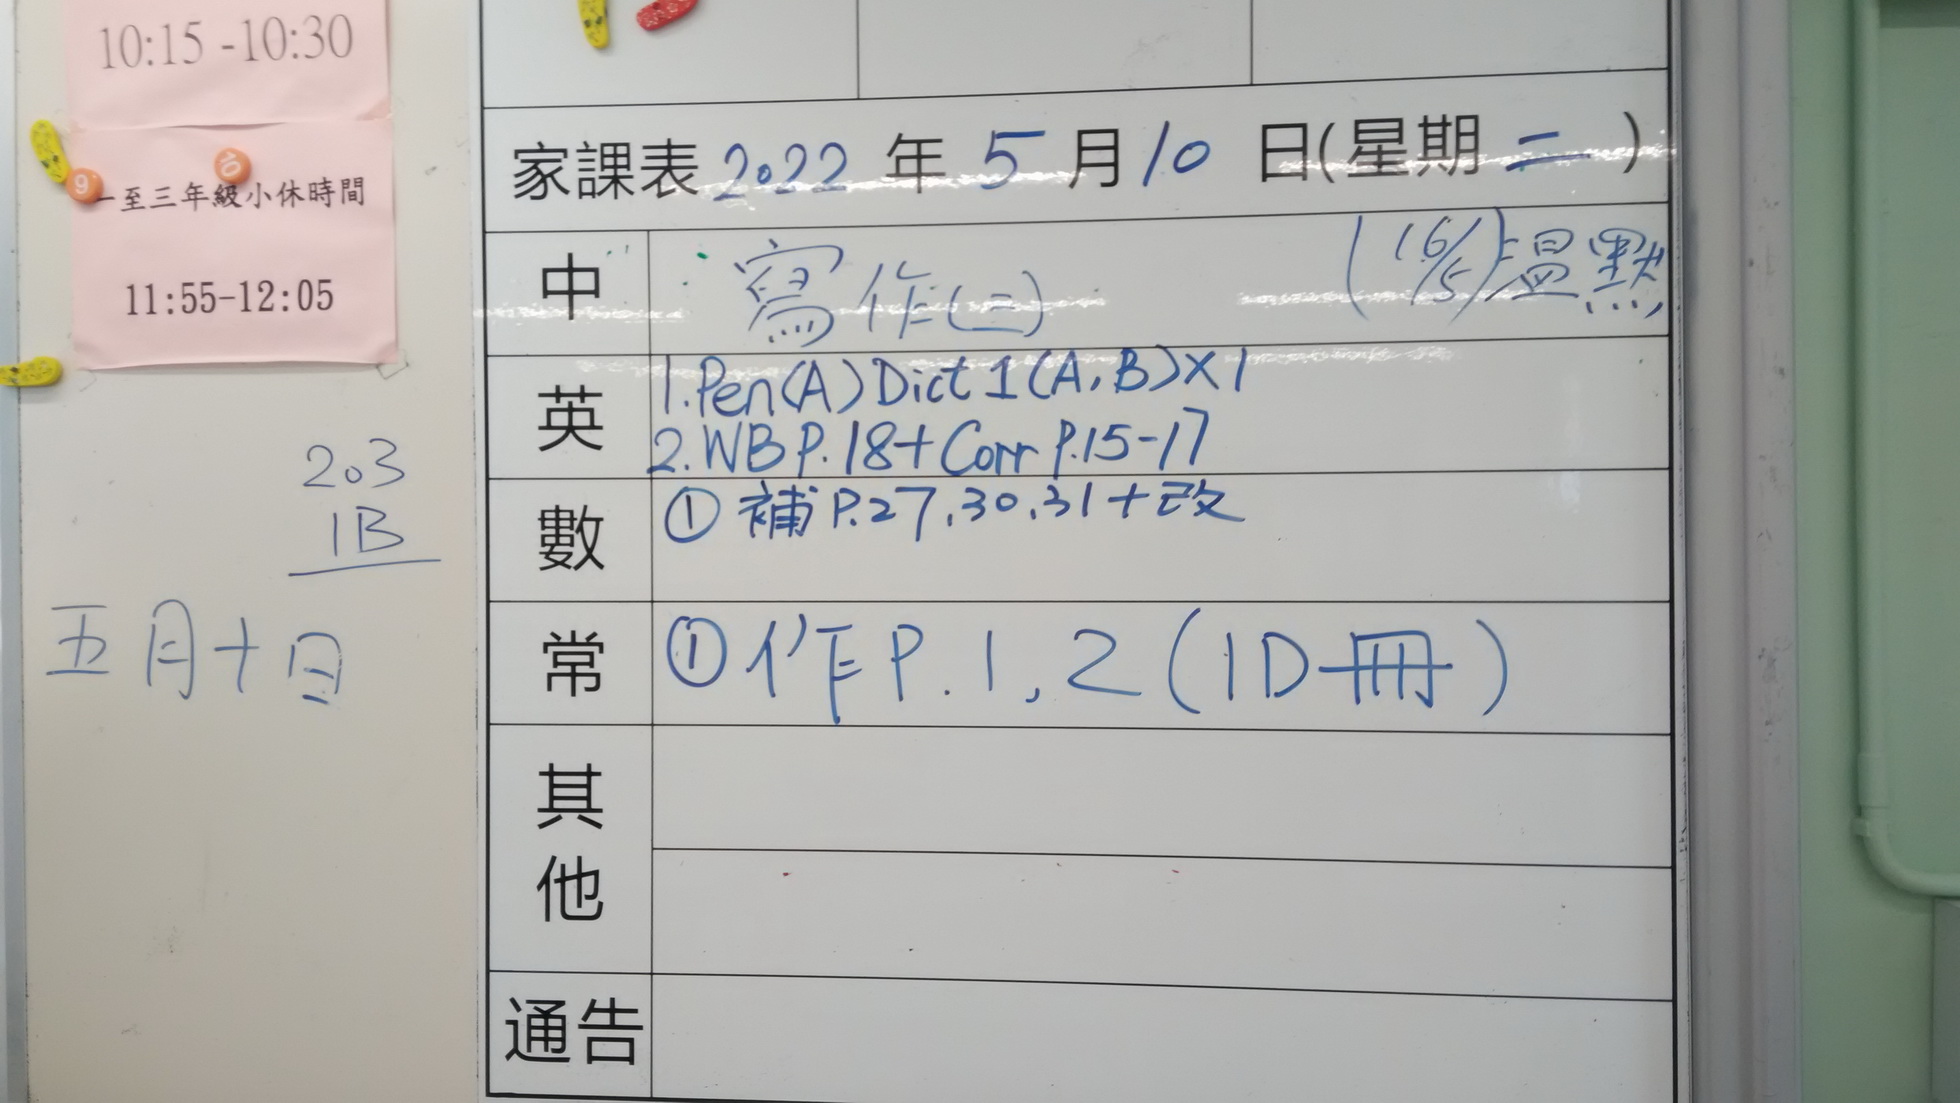 10:15-10:30
一至三年級小休時間
11:55-12:05
203
1B
五月十日
家課表 2022 年 5 月 10 日(星期 二 )
中 寫作(二) (16/5)溫默
英 1.Pen(A) Dict 1 (A,B)×1
2.WB P.18+Corr P.15-17
數 ① 補 P.27,30,31+改
常 ① 作 P.1,2(1D冊)
其他
通告